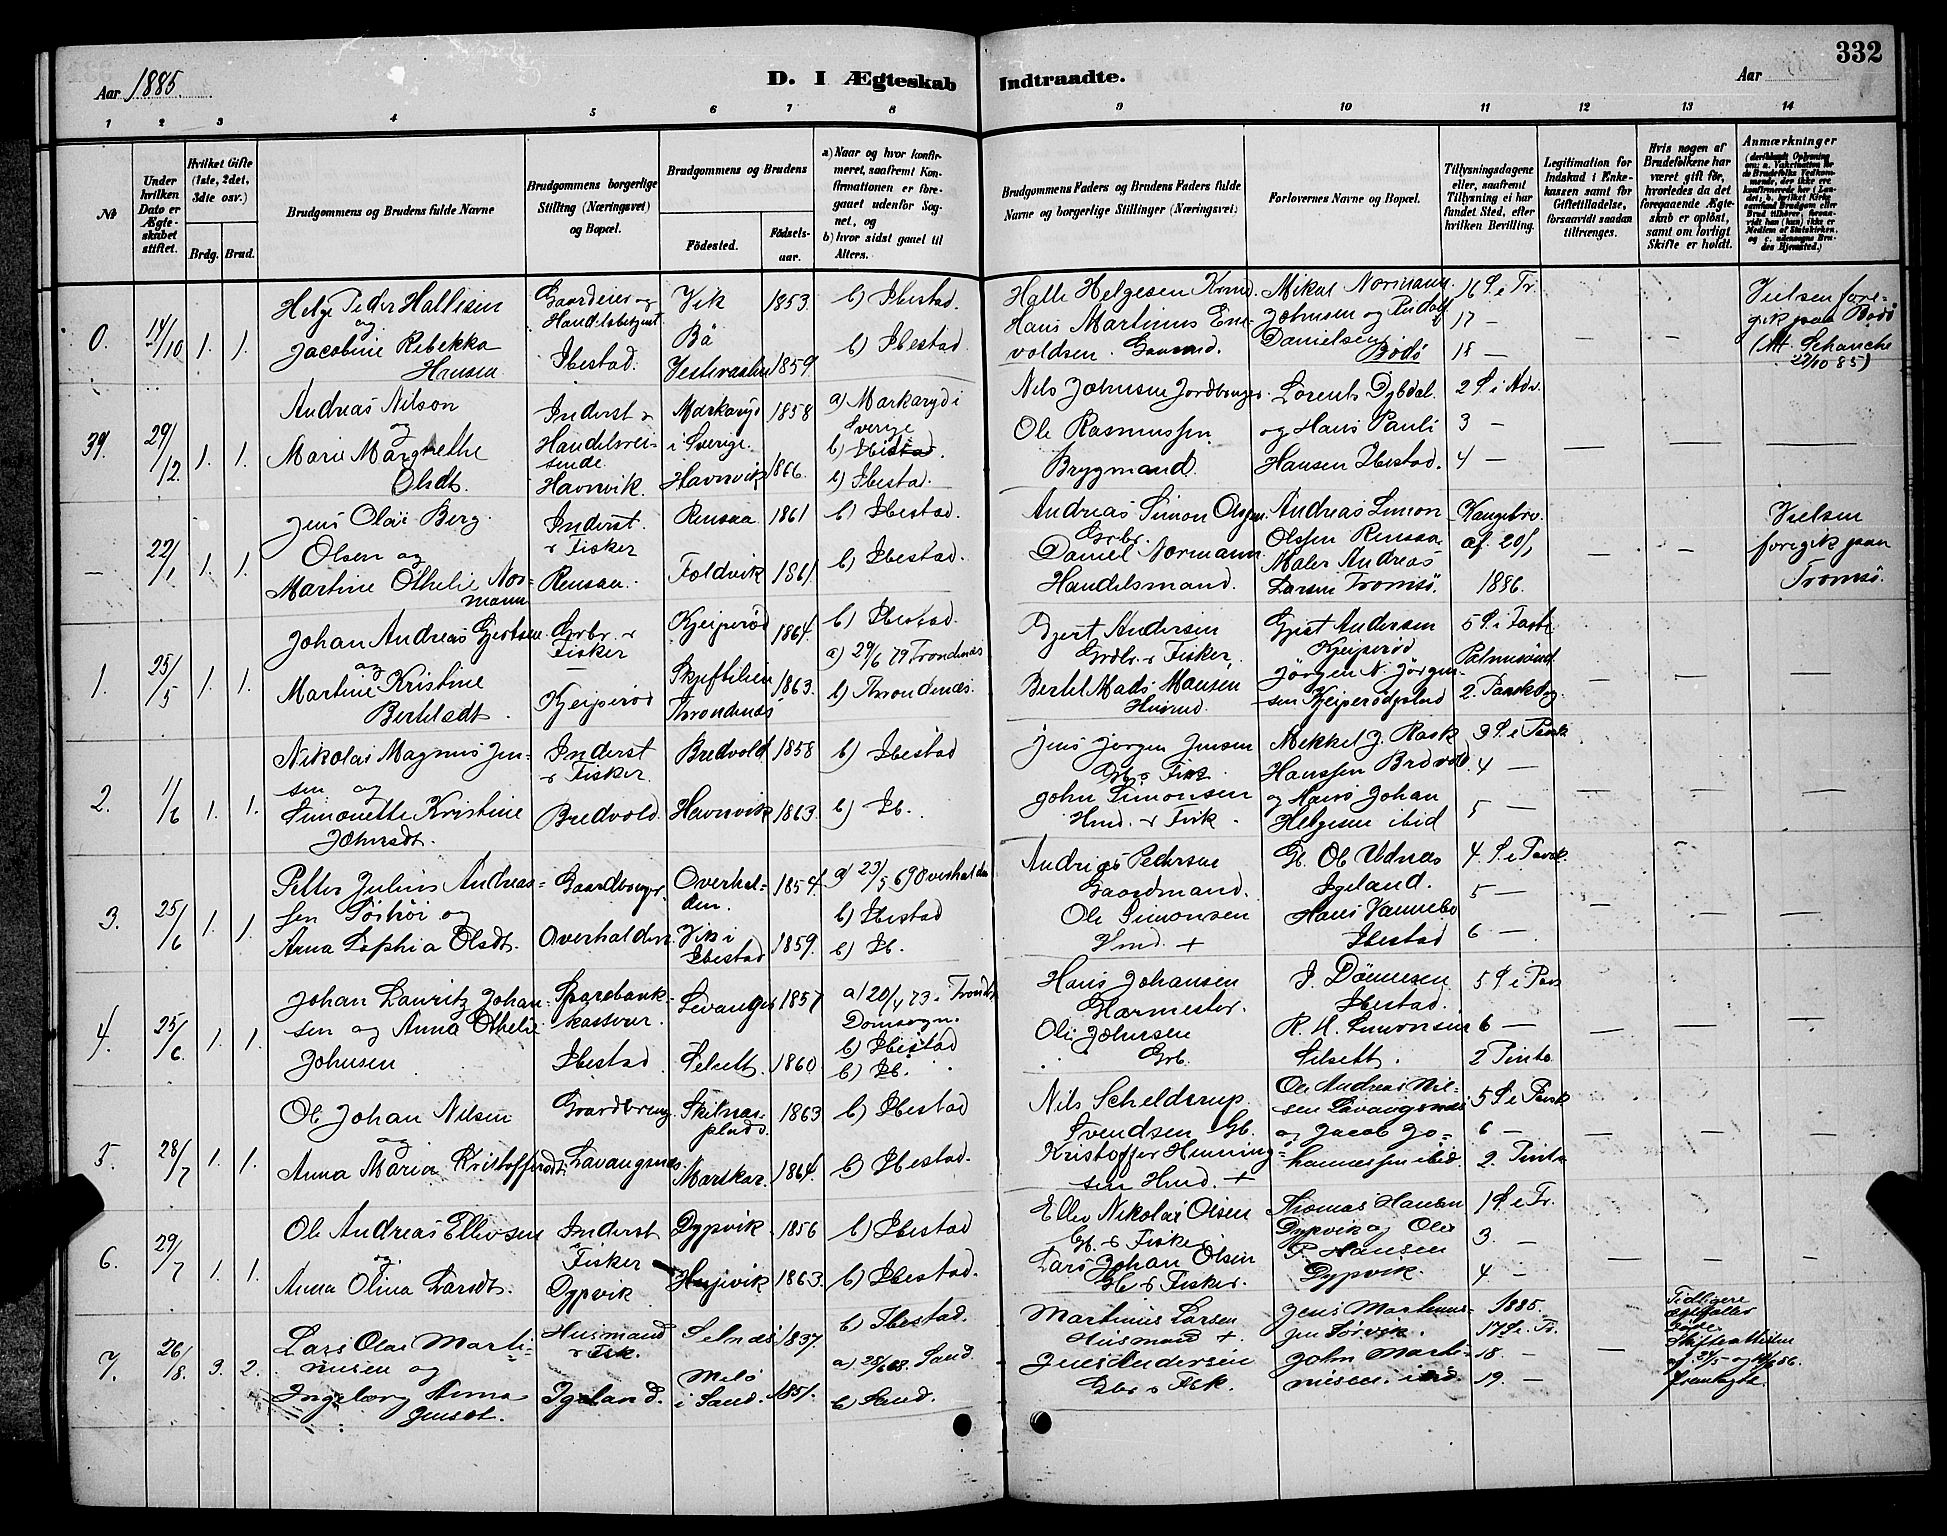 332
Aar 1885.
D. I Ægteskab Indtraadte.
Aar
1 2 3 4 5 6 7 8 9 10 11 12 13 14
№
Under hvilken Dato er Ægteskabet stiftet.
Hvilket Gifte (1ste, 2det, 3die osv.)
Brdg. Brud.
Brudgommens og Brudens fulde Navne
Brudgommens borgerlige Stilling (Næringsvei) og Bopæl.
Brudgommens og Brudens
Fødested.
Fødselsaar.
a) Naar og hvor konfirmeret, saafremt Konfirmationen er foregaaet udenfor Sognet, og
b) hvor sidst gaaet til Alters.
Brudgommens Faders og Brudens Faders fulde Navne og borgerlige Stillinger (Næringsvei)
Forlovernes Navne og Bopæl.
Tillysningsdagene eller, saafremt Tillysning ei har fundet Sted, efter hvilken Bevilling.
Legitimation for Indskud i Enkekassen samt for Giftetilladelse, forsaavidt saadan tiltrænges.
Hvis nogen af Brudefolkene har været gift før, hvorledes da det foregaaende Ægteskab er opløst, samt om lovligt Skifte er holdt.
Anmærkninger
0. 14/10 1. 1.
Helge Peder Hallesen og Jacobine Rebekka Hansen
Gaardeier og Handelsbetjent Ibestad.
Vik 1853 b) Ibestad.
Bø Vesteraalen 1859 b) Ibestad.
Halle Helgesen
Hans Martinus Enevoldsen. Gaardmd.
Mikal Normann Johnsen og Danielsen Bodø
16 S. e Tr.
17 —
18 —
Vielsen foregik paa Bodø (Att. Schanche 22/10 85)
39. 29/12. 1. 1.
Andreas Nilson og Marie Margrethe Olsdt.
Inderst & Handelsreisende. Havnvik.
Markaryd i Sverige. 1858 a) Markaryd i Sverige
b) Ibestad.
Havnvik 1866. b) Ibestad.
Nils Johnsen Jordbruger.
Ole Rasmussen Brygmand.
Lorents Dybdal. og Hans Pauli Hansen Ibestad.
2 S. i Adv.
3 —
4 —
— 22/1 1. 1.
Jens Olai Berg Olsen og Martine Othelie Normann
Inderst. & Fisker Rensaa.
Rensaa 1861 b) Ibestad.
Foldvik 1861. b) Ibestad.
Andreas Simon Olsen Grbr.
Daniel Normann Handelsmand.
Andreas Simon Olssen Rensaa Maler Andreas Larsen Tromsø.
Kongebrv. af 20/1 1886.
Vielsen foregik paa Tromsø.
1. 25/5 1. 1.
Johan Andreas Gjertsen og Martine Kristine Bertelsdt.
Grbr. & Fisker Kjeiperød
Kjeiperød 1864. b) Ibestad.
a) 29/6 79 Trondenæs
Trondenæs 1863. b) Throndenæs.
Gjert Andersen Grdbr. & Fisker.
Bertel Mads Hansen Husmd.
Gjert Andersen Kjeiperød Jørgen N. Jørgensen
5 S. i Faste
Palmesønd.
2. Paaskedag.
2. 1/6 1. 1.
Nikolai Magnus Jensen og Simonette Kristine Johnsdt.
Inderst & Fisker. Bredvold.
Bredvold 1858 b) Ibestad
Havnvik 1863. b) Ib.
Jens Jørgen Jensen Gb. & Fisk.
John Simonsen Hmd. & Fisk.
Mekkel J. Rask Hanssen Bredvold og Hans Johan Helgesen ibid
3 S. e Paask.
4 —
5 —
3. 25/6 1. 1.
Petter Julius Andreassen og Anna Sophia Olsdt.
Gaardbruger Overhalden.
Overhalden. 1854. a) 23/5 69 Overhalden
b) Ibestad
Vik i Ibestad 1859. b) Ib.
Andreas Pedersen Gaardmand.
Ole Simonsen Hmd. +
Gb. Ol. Udnæs Igeland. Hans Vannebo Ibestad
4. S. e Paask.
5 —
6 —
4. 25/6. 1. 1.
Johan Lauritz Johansen og Anna Othelie Johnsen
Sparebankkasserer. Ibestad
Levanger 1857 a) 20/4 73. Domsogn.
b) Ibestad
Selsett. 1860 b) Ib.
Hans Johansen Garmester.
Ole Johnsen Grb.
P. Dønnesen Ibestad. R. H. Simonsen Selsett.
5 S. e Paas
6 —
2 Pintse
5. 28/7 1. 1.
Ole Johan Nilsen og Anna Maria Kristoffersdt.
Gaardbrug. Lavangsnæs
1863 b) Ibestad
1864. b) Ibestad.
Nils Schelderup Svendsen Gb.
Kristoffer Henningsen Hmd. +
Ole Andreas Nilsen Lavangsnæs og Jacob Johannessen ibid.
5 S. e Paask
6 —
2. Pintse
6. 29/7 1. 1.
Ole Andreas Ellevsen og Anna Olina Larsdt.
Inderst & Fisker Dypvik
Dypvik 1856 b) Ibestad
1863. b) Ibestad.
Ellev Nikolai Olsen Gb. & Fisker
Lars Johan Olsen Gb. & Fisker.
Thomas Hansen Dypvik og Ole P. Hansen Dypvik.
1 S. e Tr.
3. —
4 —
7. 26/8. 3. 2.
Lars Olai Martinusen og Ingeborg Anna Jensdt.
Husmand & Fisk. Igeland.
Selnæs 1837. b) Ibestad.
Melø i Sand. 1851. a) 28/6 68. Sand.
b) Sand.
Martinus Larsen Husmand +.
Jens Andersen Gbr. & Fisk.
Jens Martinussen Sørvik. John Martinusen ibid.
1885.
17 S. e. Tr.
18. —
19. —
Tidligere ægtefæller døde. Skifteattester fremlagte.